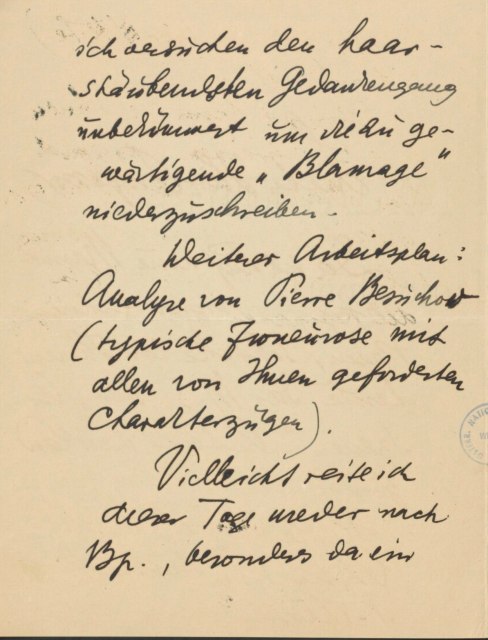 ich versuchen den haar-
sträubendsten Gedankengang
unbekümmert um die zu ge-
wärtigende „Blamage"
niederzuschreiben.
Weiterer Arbeitsplan:
Analyse von Pierre Besuchow
(typische Ironeurose mit
allen von Ihnen geforderten
Charakterzügen).
Vielleicht reise ich
dieser Tage wieder nach
Bp., besonders da ein